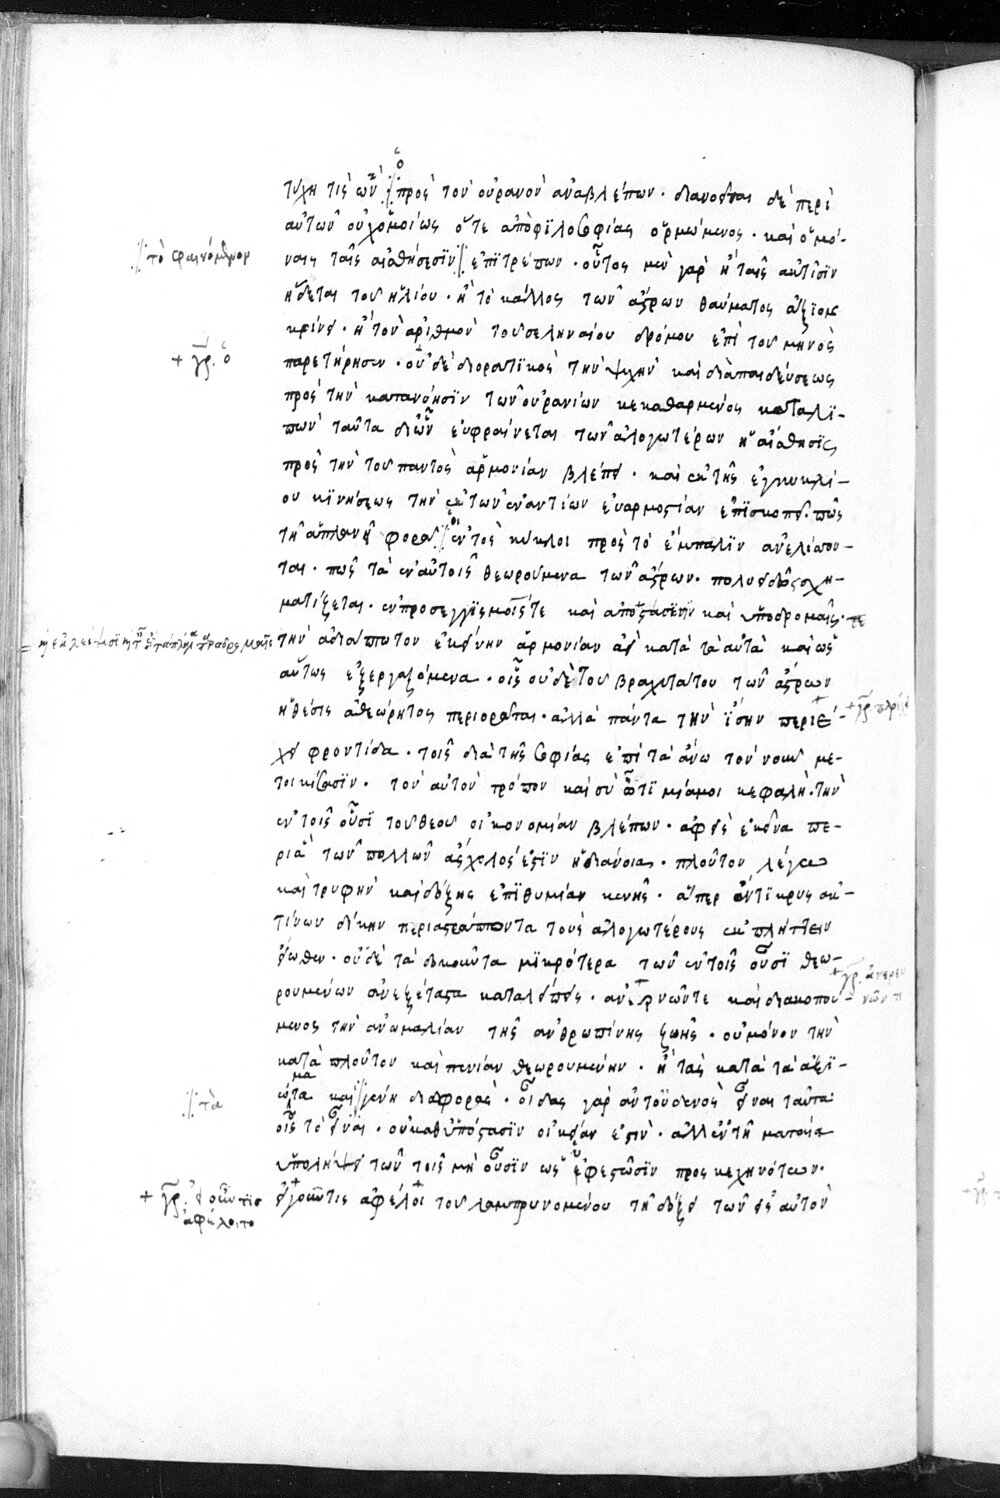 ὁ
τύχη τις ὢν πρὸς τὸν οὐρανὸν ἀναβλέπων · διανοεῖται δὲ περὶ
αὐτῶν οὐχ ὁμοίως ὅ τε ἀπὸ φιλοσοφίας ὁρμώμενος · καὶ ὁ μό-
ναις ταῖς αἰσθήσεσιν ἐπιτρέπων · οὗτος μὲν γὰρ ἢ ταῖς ἀκτῖσιν
τὸ φαινόμενον
ἥδεται τοῦ ἡλίου · ἢ τὸ κάλλος τῶν ἄστρων θαύματος ἄξιον
κρίνει · ἢ τὸν ἀριθμὸν τοῦ σεληναίου δρόμου ἐπὶ τοῦ μηνὸς
+ γρ. ὁ
παρετήρησεν · οὐ δὲ διορατικὸς τὴν ψυχὴν καὶ διὰ παιδεύσεως
πρὸς τὴν κατανόησιν τῶν οὐρανίων κεκαθαρμένος καταλι-
πὼν ταῦτα δι' ὧν εὐφραίνεται τῶν ἀλογωτέρων ἡ αἴσθησις
πρὸς τὴν τοῦ παντὸς ἁρμονίαν βλέπει · καὶ ἐκ τῆς ἐγκυκλί-
ου κινήσεως τὴν ἐκ τῶν ἐναντίων εὐαρμοστίαν ἐπισκοπεῖ · πῶς
τῇ ἀπλανεῖ φορᾷ οἱ ἐντὸς κύκλοι πρὸς τὸ ἔμπαλιν ἀνελίσσον-
ται · πῶς τὰ ἐν αὐτοῖς θεωρούμενα τῶν ἄστρων · πολυειδῶς σχη-
ματίζεται · ἐν προσεγγισμοῖς τε καὶ ἀποστάσεσιν καὶ ὑποδρομαῖς · τε
τὴν ἀδιάπτωτον ἐκείνην ἁρμονίαν ἀεὶ κατὰ τὰ αὐτὰ καὶ ὡσ
αύτως ἐξεργαζόμενα · οἷς οὐδὲ τοῦ βραχυτάτου τῶν ἄστρων
ἡ θέσις ἀθεώρητος περιορᾶται · ἀλλὰ πάντα τὴν ἴσην περιέ-
χει φροντίδα · τοῖς διὰ τῆς σοφίας ἐπὶ τὰ ἄνω τὸν νοῦν με-
τοικίσασιν · τὸν αὐτὸν τρόπον καὶ σὺ ὦ τιμία μοι κεφαλὴ · τὴν
ἐν τοῖς οὖσι τοῦ θεοῦ οἰκονομίαν βλέπων · ἀφεὶς ἐκεῖνα πε-
ρὶ ἃ τῶν πολλῶν ἄσχολός ἐστιν ἡ διάνοια · πλοῦτον λέγω
καὶ τρυφὴν καὶ δόξης ἐπιθυμίαν κενῆς · ἅπερ ἄντικρυς ἀκ-
τίνων δίκην περιαστράπτοντα τοὺς ἀλογωτέρους ἐκπλήττειν
εἴωθεν · οὐδὲ τὰ δοκοῦντα μικρότερα τῶν ἐν τοῖς οὖσι θεω-
ρουμένων ἀνεξέταστα καταλείπεις · ἀνερευνῶν τε καὶ διασκοπού-
μενος τὴν ἀνωμαλίαν τῆς ἀνθρωπίνης ζωῆς · οὐ μόνον τὴν
κατὰ πλοῦτον καὶ πενίαν θεωρουμένην · ἢ τὰς κατὰ τὰ ἀξι-
ώματα καὶ γένη διαφοράς · οἶδας γὰρ ἀντ' οὐδενὸς εἶναι ταῦτα
τὰ
οἷς τὸ εἶναι · οὐ καθ' ὑπόστασιν οἰκείαν ἐστὶν · ἀλλ' ἐν τῇ ματαίᾳ
ὑπολήψει τῶν τοῖς μὴ οὖσιν ὡς ὑφεστῶσιν προσκεχηνότων ·
εἰ γοῦν τις ἀφέλοι τοῦ λαμπρυνομένου τῇ δόξῃ τῶν εἰς αὐτὸν
+ γρ. εἰ οὖν τις
ἀφέλοιτο